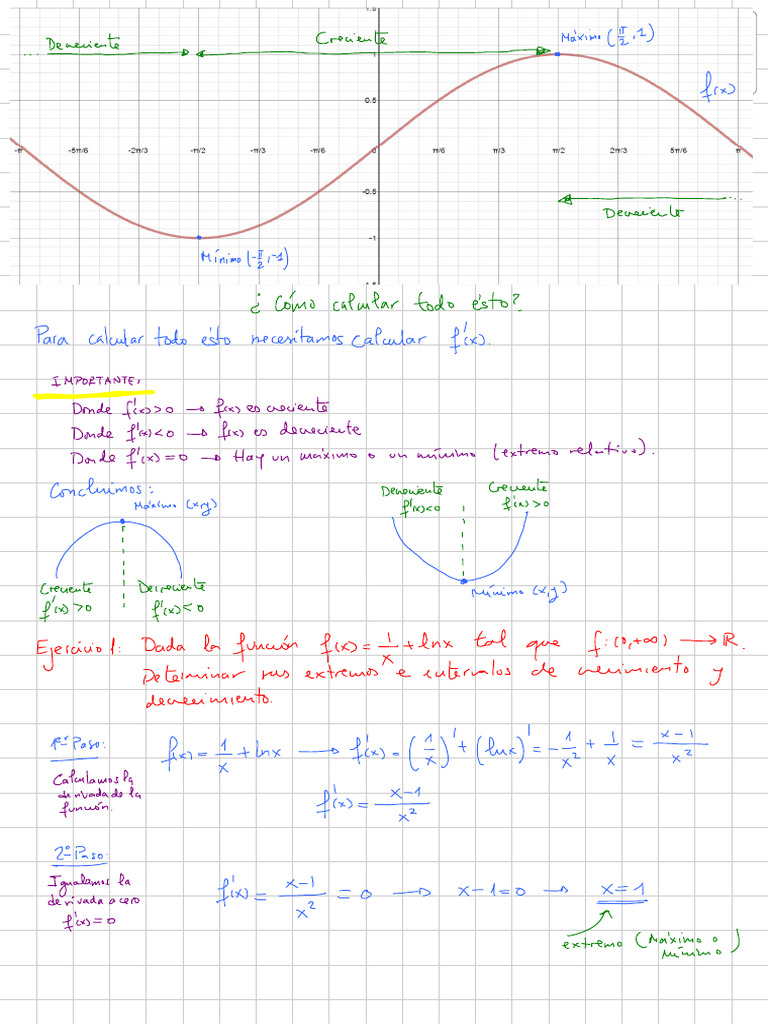 1.5
Decreciente
Creciente
Máximo (π/2, 1)
f(x)
0.5
-π -5π/6 -2π/3 -π/2 -π/3 -π/6 0 π/6 π/3 π/2 2π/3 5π/6 π
-0.5
Decreciente
-1
Mínimo (-π/2, -1)
¿Cómo calcular todo ésto?
Para calcular todo ésto necesitamos calcular f'(x).
IMPORTANTE:
Donde f'(x)>0 → f(x) es creciente
Donde f'(x)<0 → f(x) es decreciente
Donde f'(x)=0 → Hay un máximo o un mínimo (extremo relativo).
Concluimos:
Máximo (x,y)
Creciente
f'(x)>0
Decreciente
f'(x)<0
Decreciente
f'(x)<0
Creciente
f'(x)>0
Mínimo (x,y)
Ejercicio 1: Dada la función f(x)= 1/x + lnx tal que f:(0,+∞) → R.
Determinar sus extremos e intervalos de crecimiento y
decrecimiento.
1er Paso:
Calculamos la
derivada de la
función.
f(x)= 1/x + lnx → f'(x)= (1/x)' + (lnx)' = -1/x² + 1/x = x-1/x²
f'(x)= x-1/x²
2º Paso:
Igualamos la
derivada a cero
f'(x)=0
f'(x)= x-1/x² = 0 → x-1=0 → x=1
extremo (Máximo o
Mínimo)